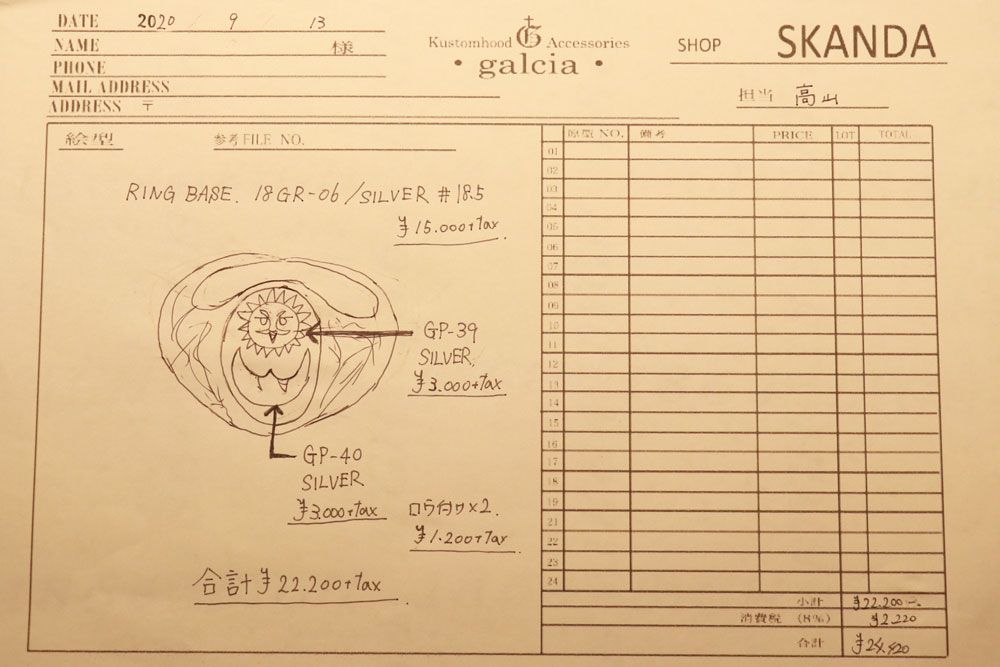 DATE 2020 / 9 / 13
NAME 様
PHONE
MAIL ADDRESS
ADDRESS 〒
Kustomhood G Accessories
• galcia •
SHOP SKANDA
担当 高山
絵型 参考FILE NO.
RING BASE. 18GR-06/SILVER #18.5
¥15.000+tax
GP-39
SILVER
¥3.000+tax
GP-40
SILVER
¥3.000+tax
ロウ付け×2.
¥1.200+tax
合計 ¥22.200+tax
原型 NO. 備考 PRICE LOT TOTAL
01
02
03
04
05
06
07
08
09
10
11
12
13
14
15
16
17
18
19
21
22
23
24
小計 ¥22.200-
消費税 (8%) ¥2.220
合計 ¥24.420